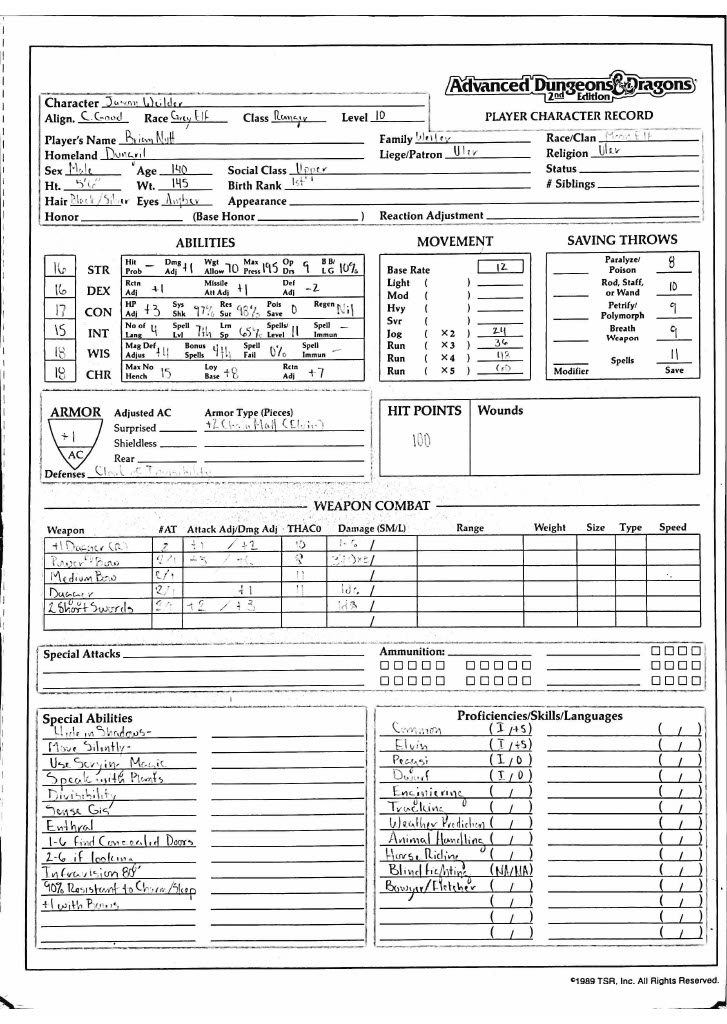 Advanced Dungeons & Dragons
2nd Edition
PLAYER CHARACTER RECORD
Character
Align. C. Good Race Grey Elf Class Ranger Level 10
Player's Name Brian Family Race/Clan
Homeland Liege/Patron Uler Religion Uler
Sex Male Age 140 Social Class Upper Status
Ht. 5'6" Wt. 145 Birth Rank 1st # Siblings
Hair Black/Silver Eyes Amber Appearance
Honor (Base Honor ) Reaction Adjustment
ABILITIES
16 STR Hit Prob - Dmg Adj +1 Wgt Allow 70 Max Press 195 Op Drs 9 BB/LG 10%
16 DEX Rctn Adj +1 Missile Att Adj +1 Def Adj -2
17 CON HP Adj +3 Sys Shk 97% Res Sur 98% Pois Save 0 Regen Nil
15 INT No of Lang 4 Spell Lvl 7th Lrn Sp 65% Spells/Level 11 Spell Immun -
18 WIS Mag Def Adjus +4 Bonus Spells 4th Spell Fail 0% Spell Immun -
18 CHR Max No Hench 15 Loy Base +8 Rctn Adj +7
MOVEMENT
Base Rate 12
Light ( )
Mod ( )
Hvy ( )
Svr ( )
Jog ( ×2 ) 24
Run ( ×3 ) 36
Run ( ×4 )
Run ( ×5 )
SAVING THROWS
Paralyze/Poison 8
Rod, Staff, or Wand 10
Petrify/Polymorph 9
Breath Weapon 9
Spells 11
Modifier Save
ARMOR Adjusted AC Armor Type (Pieces)
+1 AC
Surprised +2 Chain Mail (Elvin)
Shieldless
Rear
Defenses Cloak of
HIT POINTS 100 Wounds
WEAPON COMBAT
Weapon #AT Attack Adj/Dmg Adj THAC0 Damage (SM/L) Range Weight Size Type Speed
+1 Dagger 2 +1 / +2 10 /
Bow 2/1 +3 / 8 /
Medium Bow 2/1 11 /
Dagger 2/1 +1 11 /
2 Short Swords +2 / +3 1d8 /
/
Special Attacks Ammunition:
Special Abilities
Hide in Shadows-
Move Silently-
Use Scrying Magic
Speak with Plants
Divisibility
Sense
Enthral
1-6 Find Concealed Doors
2-6 if looking
Infravision 80"
90% Resistant to Charm/Sleep
+1 with Bows
Proficiencies/Skills/Languages
Common (I/+5) ( / )
Elvin (I/+5) ( / )
Pegasi (I/0) ( / )
Dwarf (I/0) ( / )
Enginiering ( / ) ( / )
Tracking ( / ) ( / )
Weather Prediction ( / ) ( / )
Animal Handling ( / ) ( / )
Horse Riding ( / ) ( / )
Blind fighting (NA/NA) ( / )
Bowyer/Fletcher ( / ) ( / )
( / ) ( / )
( / ) ( / )
( / ) ( / )
©1989 TSR, Inc. All Rights Reserved.